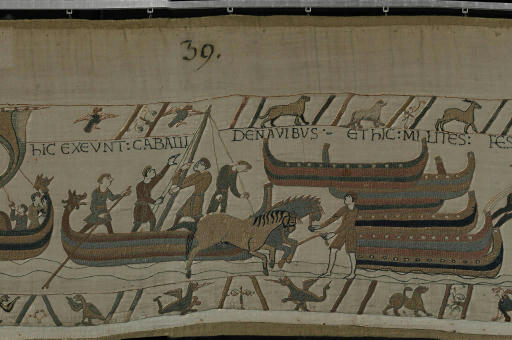 39.
HIC EXEVNT: CABALLI DENAVIBVS:- ET HIC: MILITES: FES